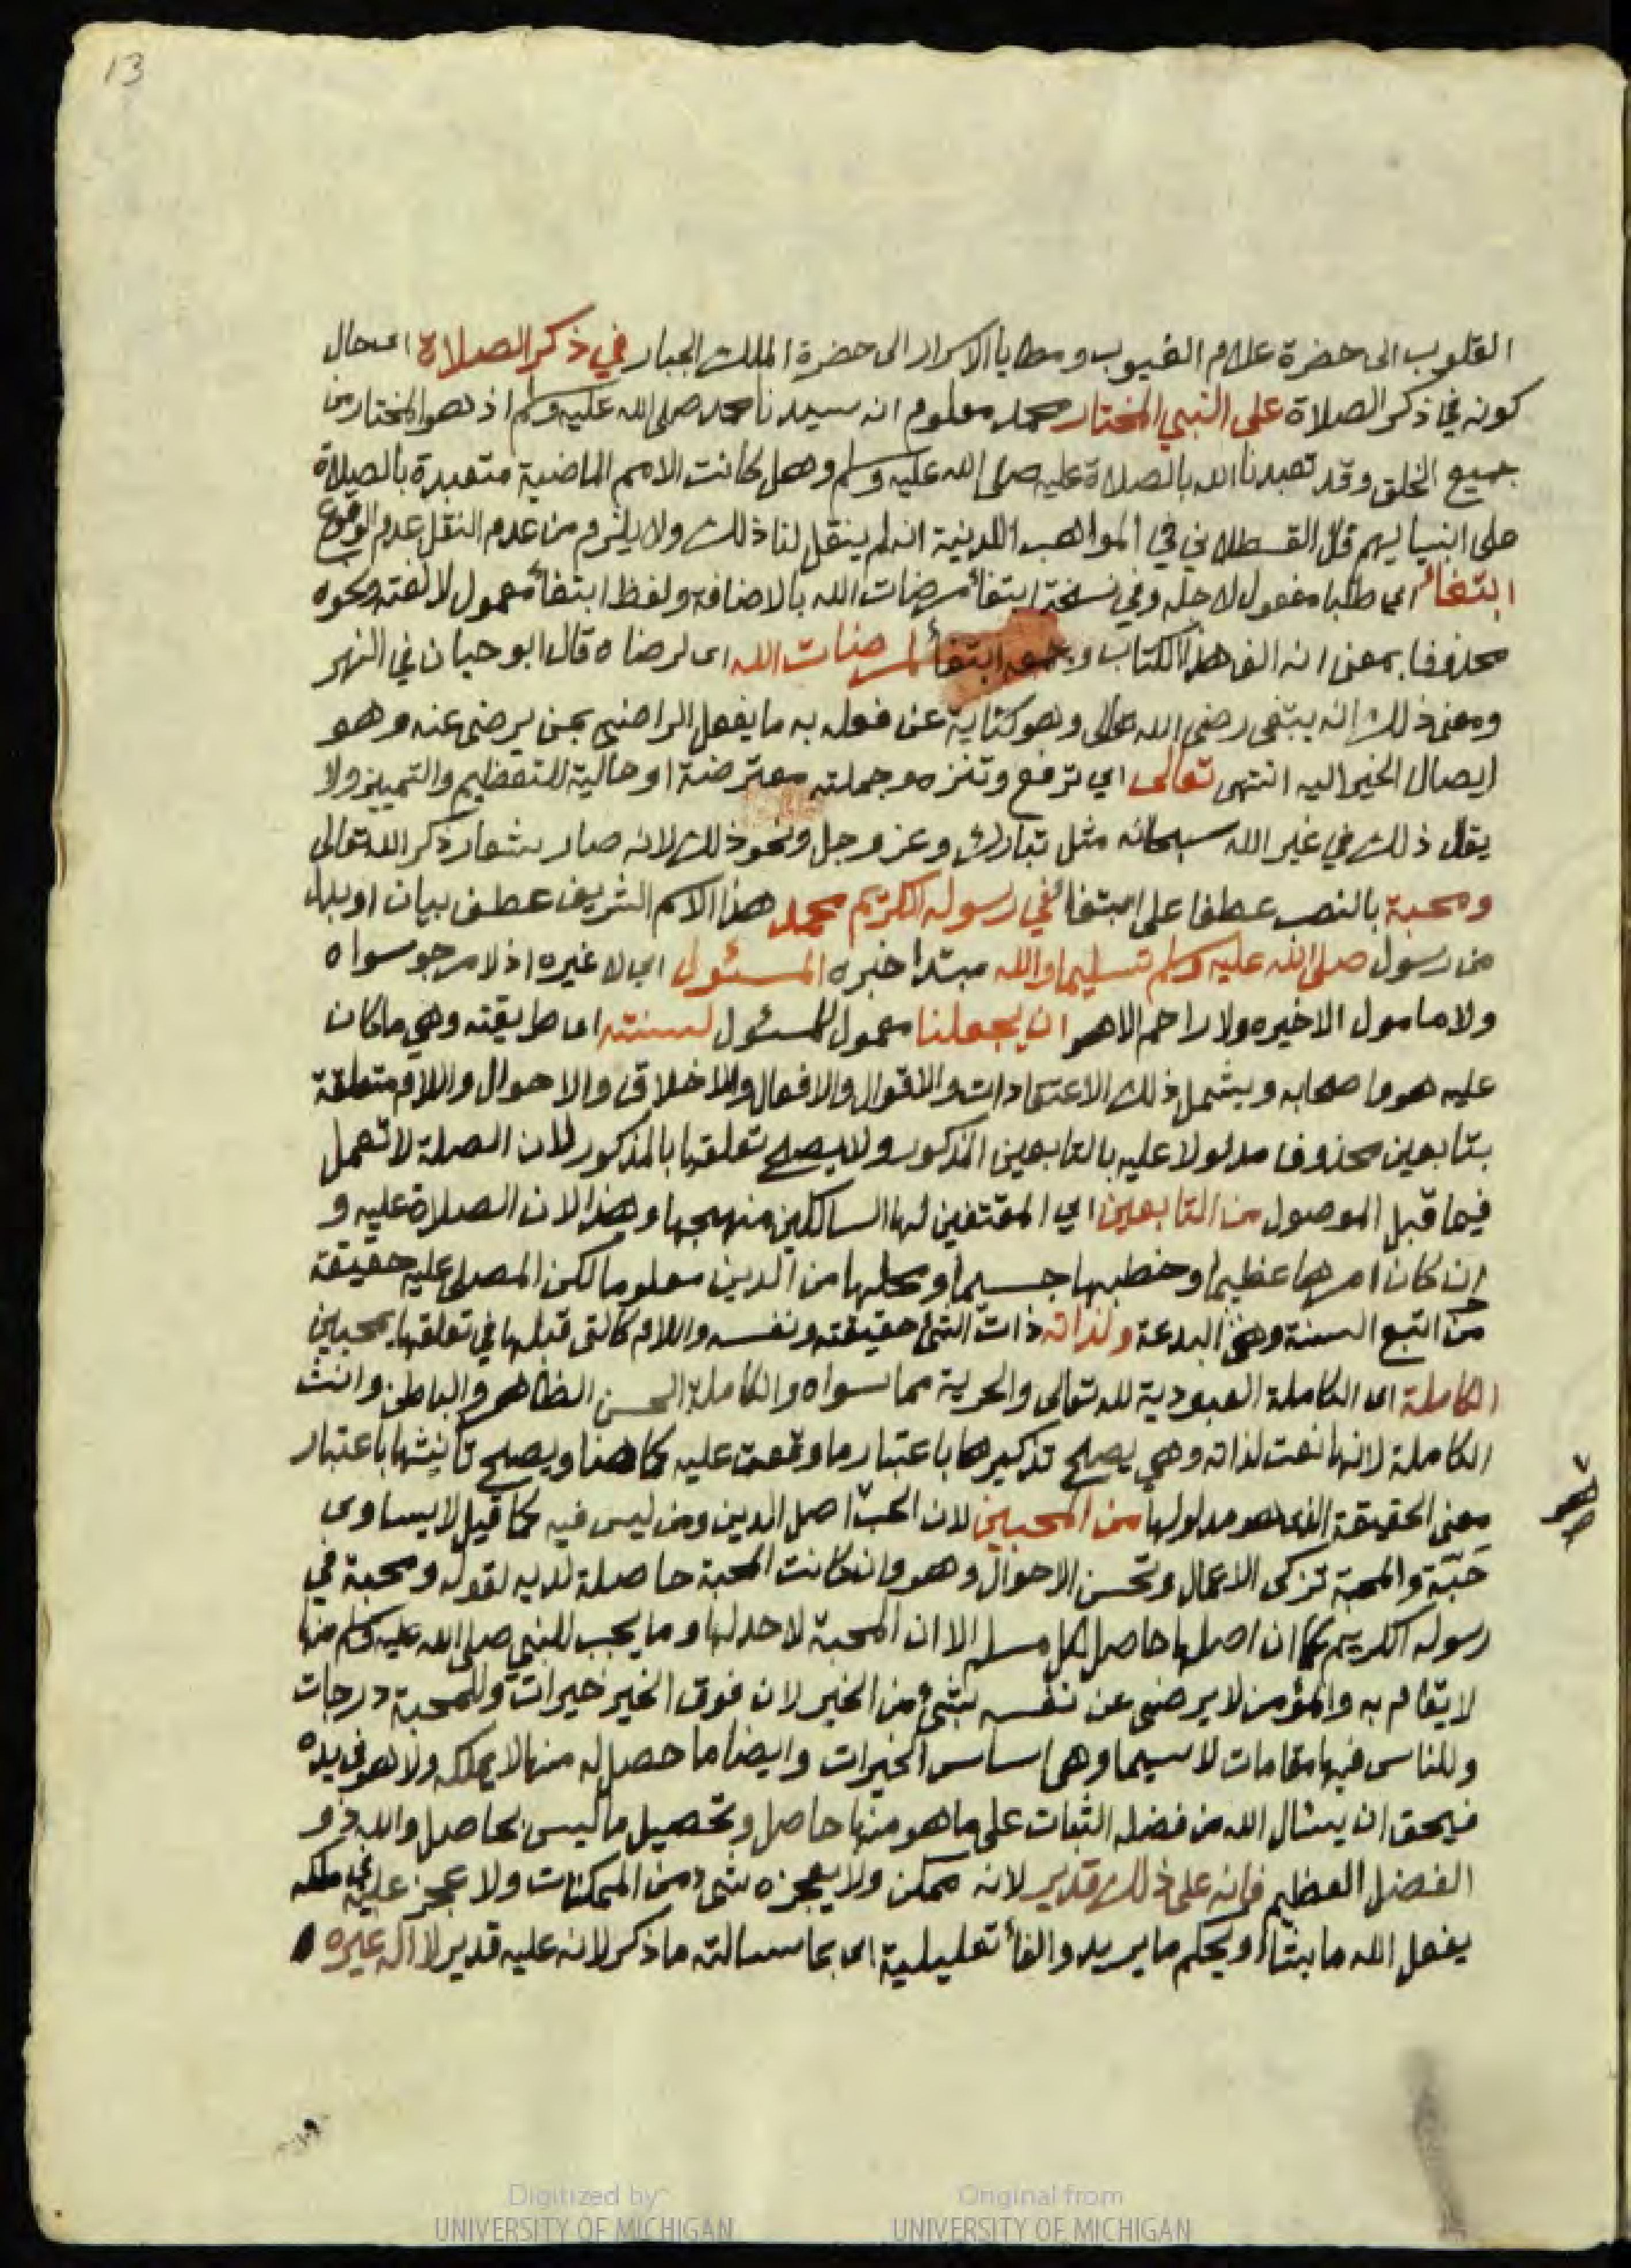 13
القلوب الى حضرة علام الغيوب ومطايا الاسرار الى حضرة الملك الجبار في ذكر الصلاة اى حال
كونه في ذكر الصلاة على النبي المختار محمد معلوم انه سيدنا محمد صلى الله عليه وسلم اذ هو المختار من
جميع الخلق وقد تعبدنا الله بالصلاة عليه صلى الله عليه وسلم وهل كانت الامم الماضية متعبدة بالصلاة
على انبيايهم قال القسطلاني في المواهب اللدينة انه لم ينقل لنا ذلك ولا يلزم من عدم النقل عدم الوقوع
ابتغاء اي طلبا مفعول لاجله وفي نسخة ابتغاء مرضات الله بالاضافة ولفظ ابتغاء معمول لالفته ونحوه
محذوفا بمعنى انه الف هذا الكتاب ابتغاء لمرضات الله اى لرضاه قال ابو حيان في النهر
ومعنى ذلك انه يبتغى رضى الله تعالى وهو كناية عن فعله به ما يفعل الراضي بمن يرضى عنه وهو
ايصال الخير اليه انتهى تعالى اي ترفع وتنزه وجملته معترضة او حالية للتعظيم والتمييز ولا
يقال ذلك في غير الله سبحانه مثل تبارك وعز وجل ونحو ذلك لانه صار شعار ذكر الله تعالى
ومحبة بالنصب عطفا على ابتغاء في رسوله الكريم محمد هذا الاسم الشريف عطف بيان او بدل
من رسول صلى الله عليه وسلم تسليما والله مبتدا خبره المسئول اي لا غيره اذ لا مرجو سواه
ولا مامول الا خيره ولا راحم الا هو ان يجعلنا معمول للمسئول لسنته اى طريقته وهي ما كان
عليه هو واصحابه ويشمل ذلك الاعتقادات والاقوال والافعال والاخلاق والاحوال واللام متعلقة
بتابعين محذوفا مدلولا عليه بالتابعين المذكور ولا يصلح تعلقها بالمذكور لان الصلة لا تعمل
فيما قبل الموصول من التابعين اي المقتفين لها السالكين منهجها وهذا لان الصلاة عليه و
ان كان امرها عظيما وخطبها جسيما ومحلها من الدين معلوما لكن المصلى عليه حقيقة
من اتبع السنة وهجر البدعة ولذاته ذات الشئ حقيقته ونفسه واللام كالتى قبلها في تعلقها بمحبين
الكاملة اى الكاملة العبودية لله تعالى والحرية مما سواه والكاملة الحسن الظاهر والباطن وانث
الكاملة لانها نعت لذاته وهي يصلح تذكيرها باعتبار ما وقعت عليه كما هنا ويصلح تأنيثها باعتبار
معنى الحقيقة الذى هو مدلولها من المحبين لان الحب اصل الدين ومن ليس فيه كما قيل لا يساوى
حبّة والمحبة تزكى الاعمال وتحسن الاحوال وهو وان كانت المحبة حاصلة لديه لقوله ومحبة في
رسوله الكريم كما ان اصلها حاصل لكل مسلم الا ان المحبة لا حد لها وما يجب للنبي صلى الله عليه وسلم منها
لا يقام به والمؤمن لا يرضى عن نفسه بشئ من الخير لان فوق الخير خيرات وللمحبة درجات
وللناس فيها مقامات لا سيما وهى اساس الخيرات وايضا ما حصل له منها لا يملكه ولا هو في يده
فيحق ان يسئال الله من فضله الثبات على ما هو منها حاصل وتحصيل ما ليس بحاصل والله ذو
الفضل العظيم فانه على ذلك قدير لانه ممكن ولا يعجزه شئ من الممكنات ولا عجز عليه في ملكه
يفعل الله ما يشاء ويحكم ما يريد والفاء تعليلية اى بما سالته ما ذكر لانه عليه قدير لا اله غيره
Digitized by
UNIVERSITY OF MICHIGAN
Original from
UNIVERSITY OF MICHIGAN